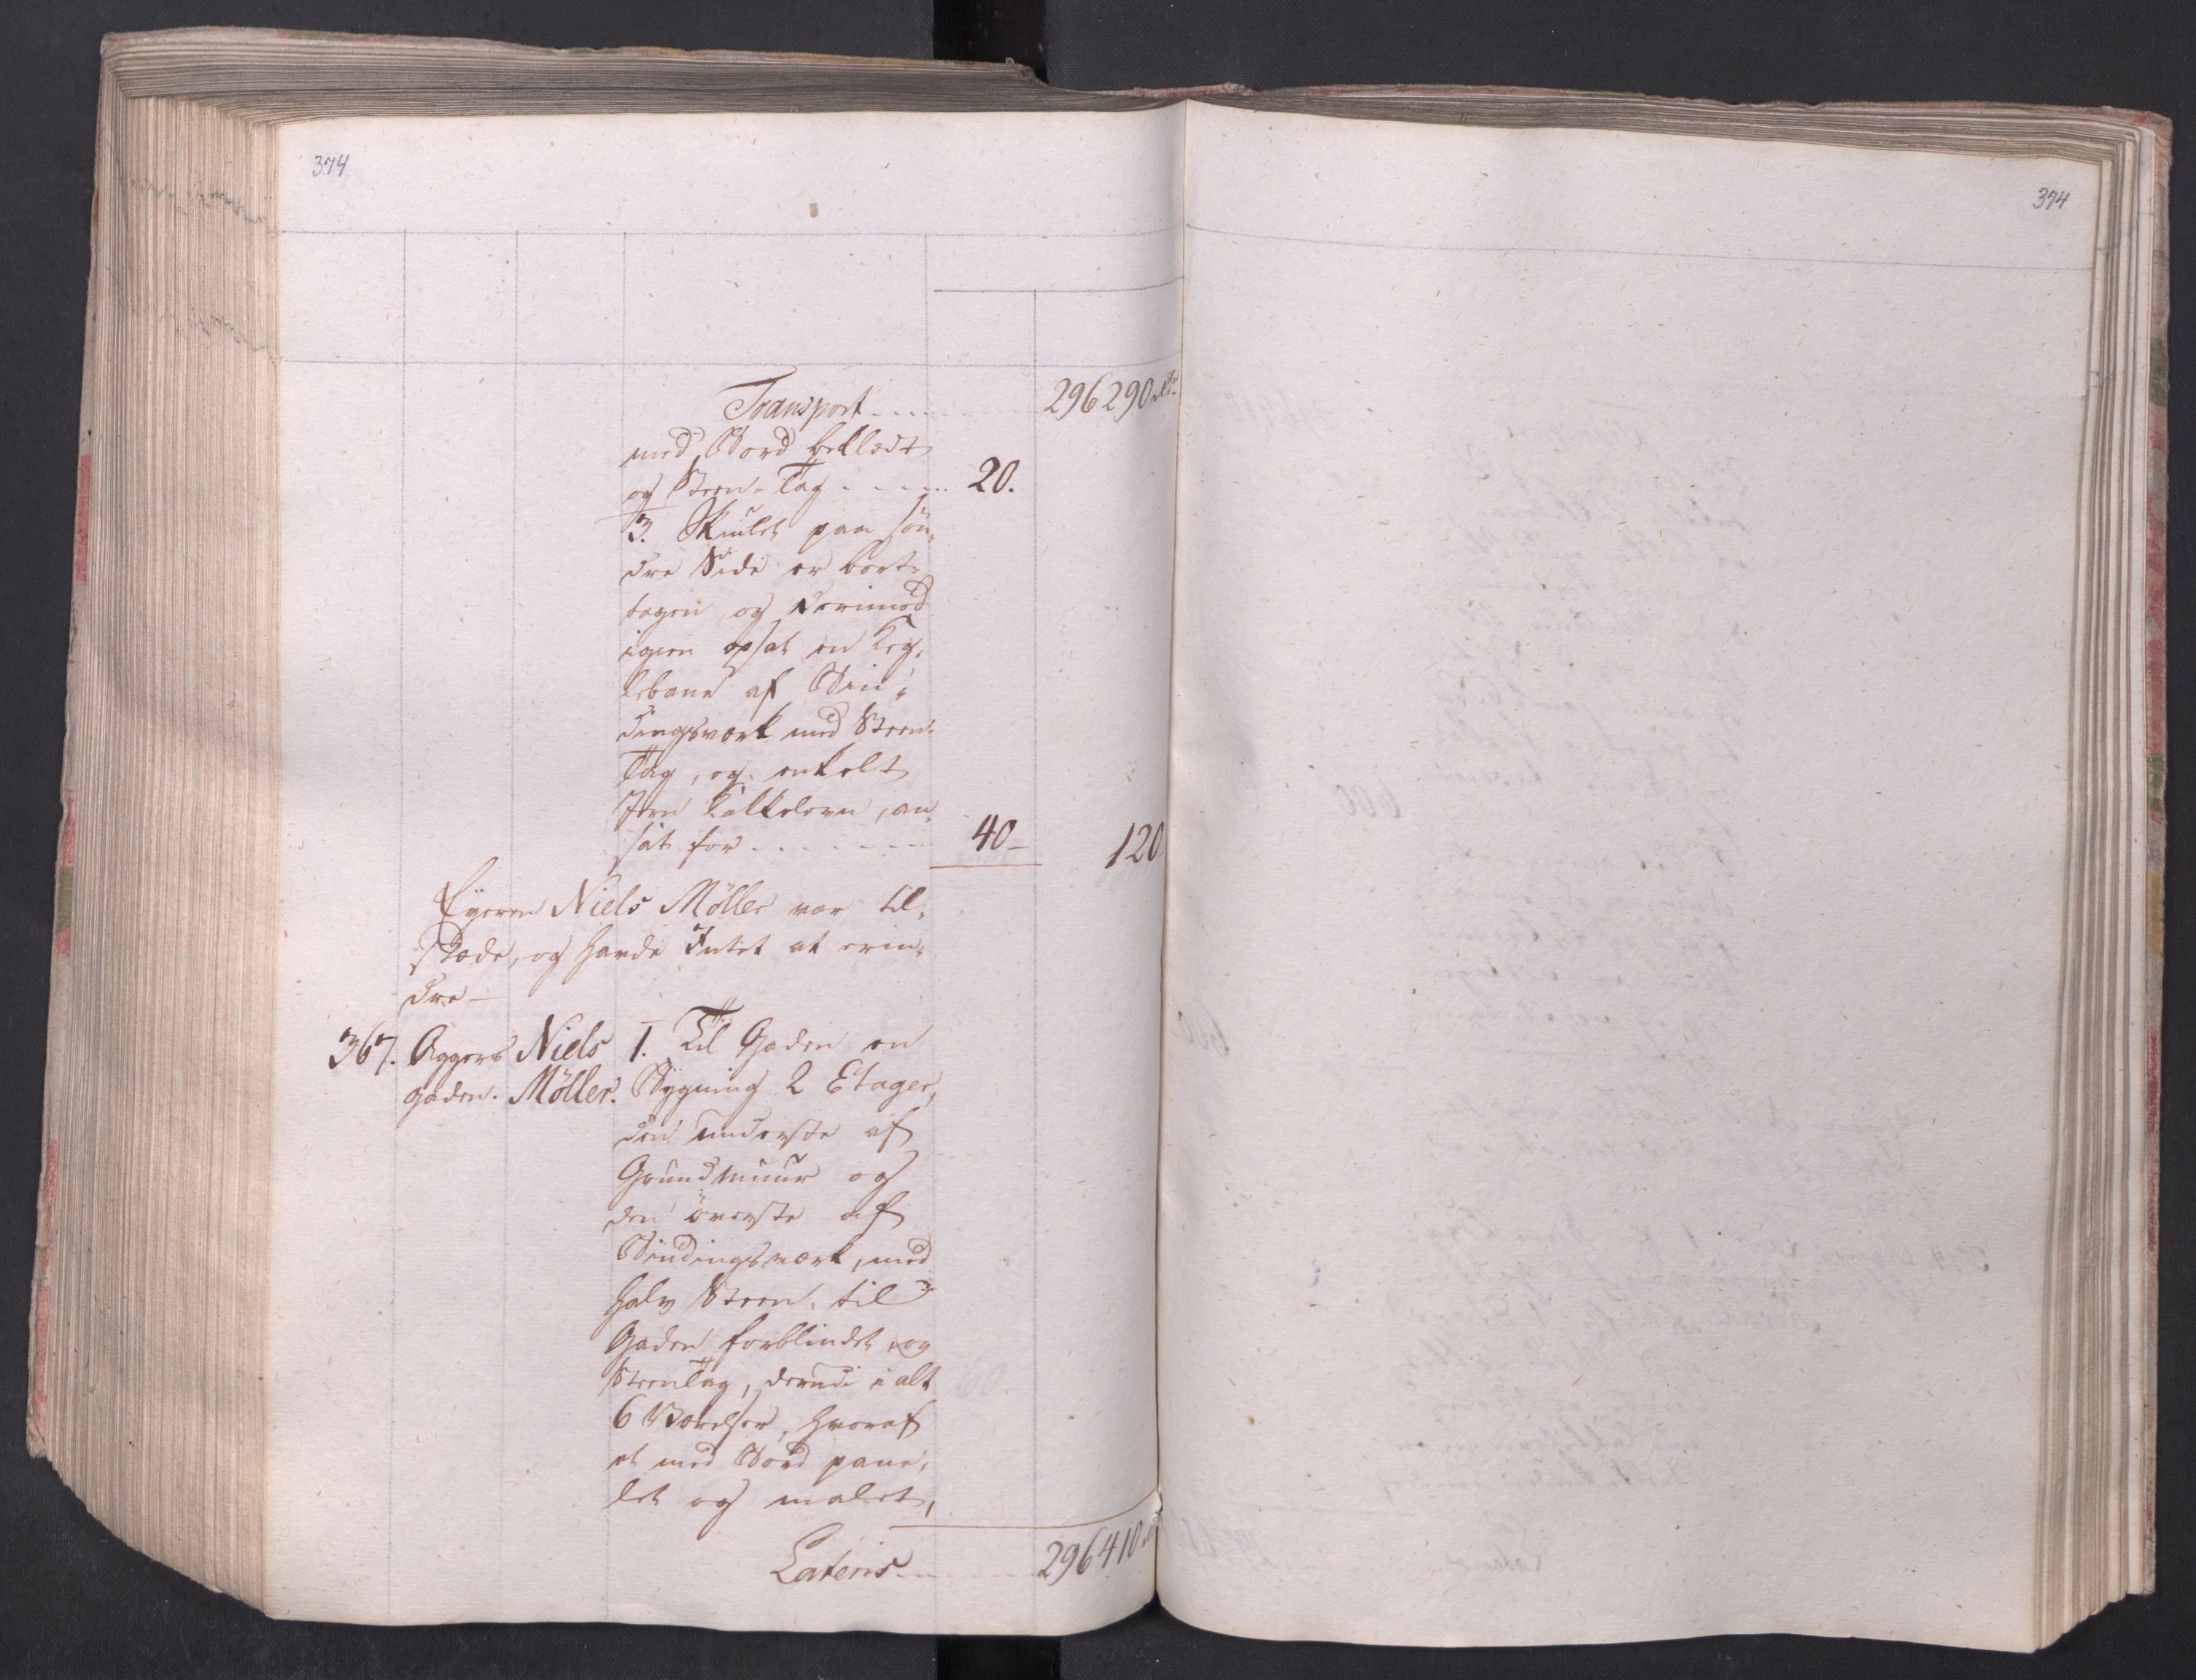 374
374
Transport - - - 296290 rdr
med Bord beklædt
og Steen-Tag - - - - 20.
3. Skulet paa søn-
dre Side er bort-
tagen, og derimod
igien opsat en Keg-
lebane af Bin-
dingsværk med Steen-
Tag, og enkelt
Jern Kakkelovn, an-
sat for - - - - - - 40 - 120
Eyeren Niels Möller var til-
stæde, og havde Intet at erin-
dre -
367. Aggers Niels 1. Til Gaden en
gaden. Möller. Bygning 2 Etager,
den underste af
Grundmuur og
den överste af
Bindingsværk, med
halv Steen til
Gaden forblindet, og
SteenTag, derudi i alt
6 Værelser, hvoraf
et med Bord pane-
let og malet,
Lateris - - - 296410